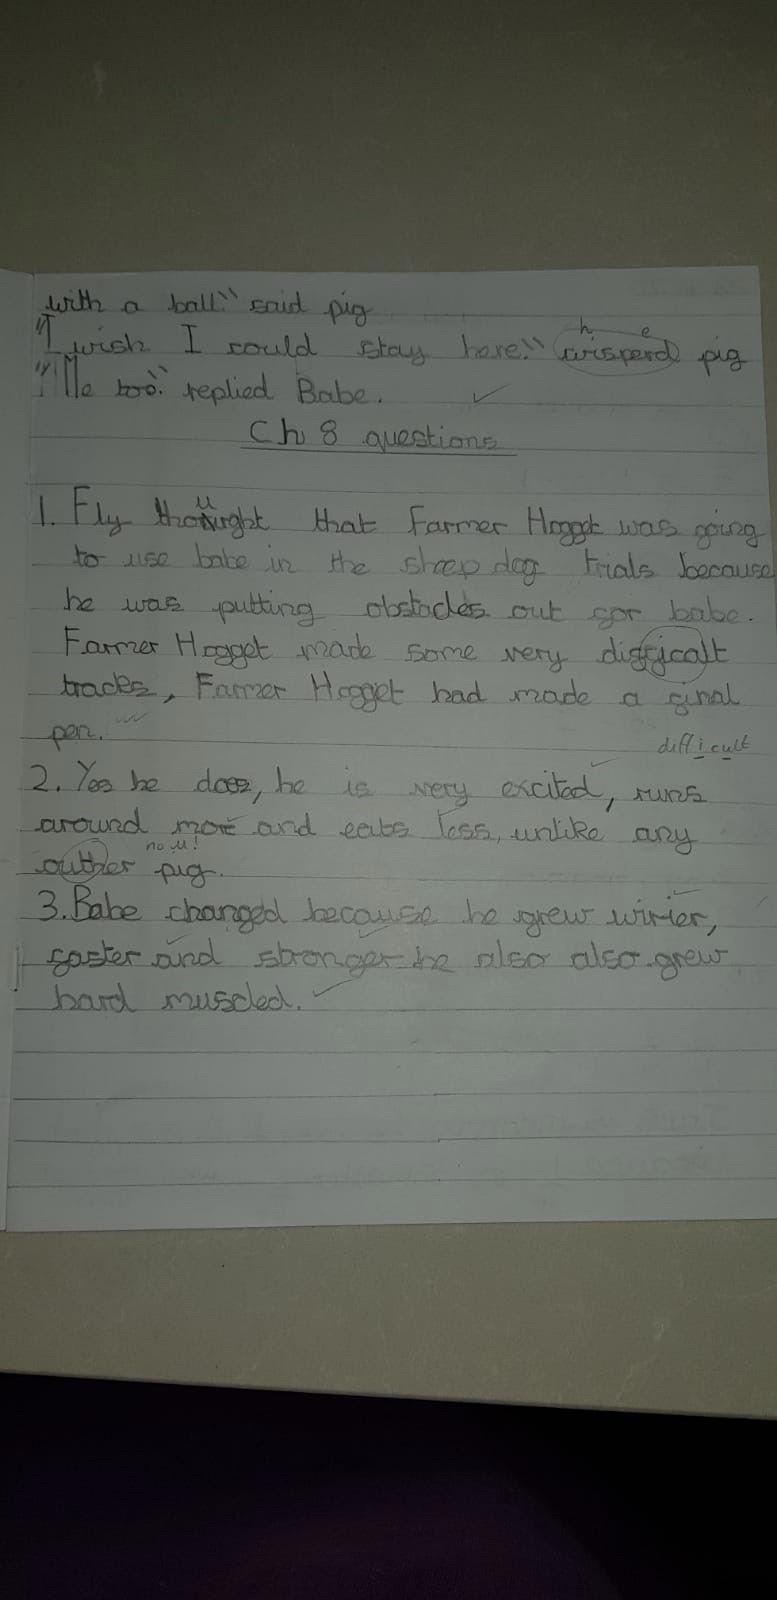 with a ball" said pig
"I wish I could stay here." wisperd pig
h e
"Me too." replied Babe.
Ch 8 questions
1. Fly thought that Farmer Hogget was going
to use babe in the sheep dog trials because
he was putting obstacles out for babe.
Farmer Hogget made some very difficalt
tracks, Farmer Hogget had made a final
pen.
difficult
2. Yes he does, he is very excited, runs
around more and eats less, unlike any
no u!
outher pig.
3. Babe changed because he grew wirier,
faster and stronger he also also grew
hard muscled.